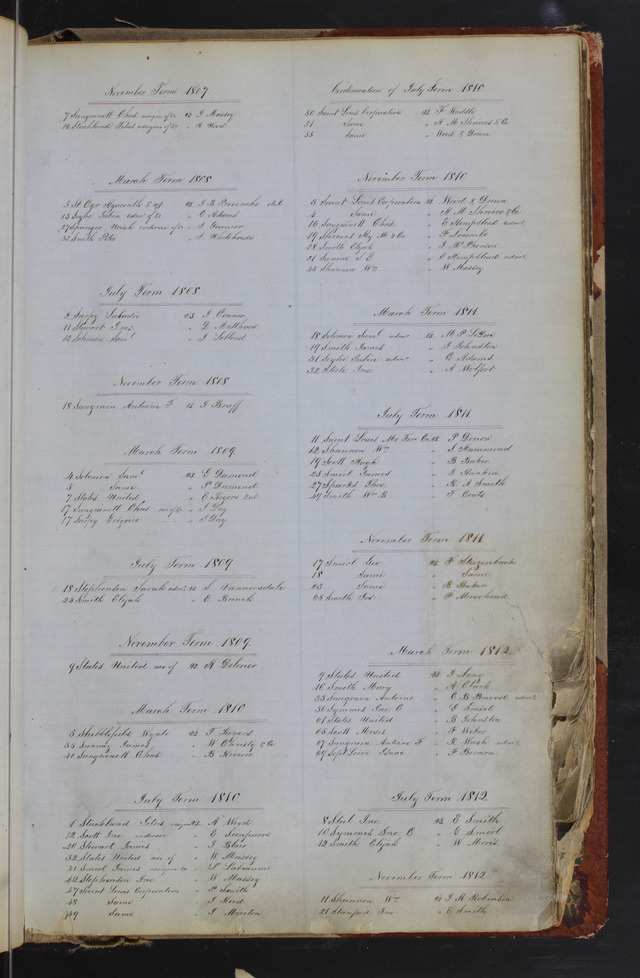 November Term 1807
7 Sanguinett Chas assignee of &c vs J Massey
16 Strickland Giles assignee of &c " Wood
March Term 1808
5 St Cyr Hyacinth & wf vs J B Provenche
13 Soghr Ruben admr of &c " C Adams
27 Sprager Uriah &c "
53 Smith Pike " Whitehouse
July Term 1808
2 Sarpy vs J Connor
11 Stewart Jas " D Matthews
12 Solomon Saml " J Leblond
November Term 1808
18 Saugrain Antoine F vs J Bruff
March Term 1809
4 Solomon Saml vs G Dumond
5 Same " P Dumond
7 States United " C Rogers
17 Sanguinett Chas use of &c " J Day
17 Sarpy Gregoire " J Day
July Term 1809
18 Stephenson Sarah admx vs S Vannorsdale
24 Smith Elijah " E Burnet
November Term 1809
9 States United use of vs H Delorier
March Term 1810
5 Stubblefield Wyatt vs T Rogers
35 Sweeny James " W Christy & Co
40 Sanguinett Chas " B
July Term 1810
1 Strickland Giles assignee vs A Wood
12 Scott Jno "
20 Stewart James " J Blair
32 States United use of " W Massey
41 Smirl James " L Labeaume
42 Stephenson Jno " W Massey
47 Saint Louis Corporation " P Smith
48 Same " J Reed
49 Same " J Morton
Continuation of July Term 1810
50 Saint Louis Corporation vs F Waddle
51 Same " H M Shreves & Co
55 Same " Wood & Dunn
November Term 1810
3 Saint Louis Corporation vs Wood & Dunn
4 Same " H M Shreve & Co
16 Sanguinett Chas " E Hempstead admr
19 Shreves Hy M & Co " F Lacombe
28 Smith Elijah " J McPherson
31 S E " E Hempstead admr
43 Shannon Wm " W Massey
March Term 1811
18 Solomon Saml admr vs M P Leduc
19 Smith James " J Johnston
31 Ruben admr " C Adams
32 Jno " A Wolfort
July Term 1811
11 Saint Louis Mo Fur Co vs P Dorion
12 Shannon Wm " S Hammond
19 Scott Hugh " B Baker
23 Smirl James " J Rankin
27 Sparks Thos " R A Smith
49 Smith Wm B " T Coats
November Term 1811
17 Smirl Geo vs F Steigenback
18 Same " Same
20 Same " B Baker
65 Smith Jos " P Moorhead
March Term 1812
9 States United vs J Long
10 Smith Mary " A Clark
33 Saugrain Antoine " C B Penrose admr
36 Symmes Jno C " G Smirl
61 States United " B Johnston
65 Scott Moses " F Weber
67 Saugrain Antoine F " R Wash admr
69 Isaac " F
July Term 1812
8 Jno vs E Smith
10 Symmes Jno C " G Smirl
12 Smith Elijah " W Morris
November Term 1812
11 Shannon Wm vs J H Robinson
21 Stanford Jno " E Smith